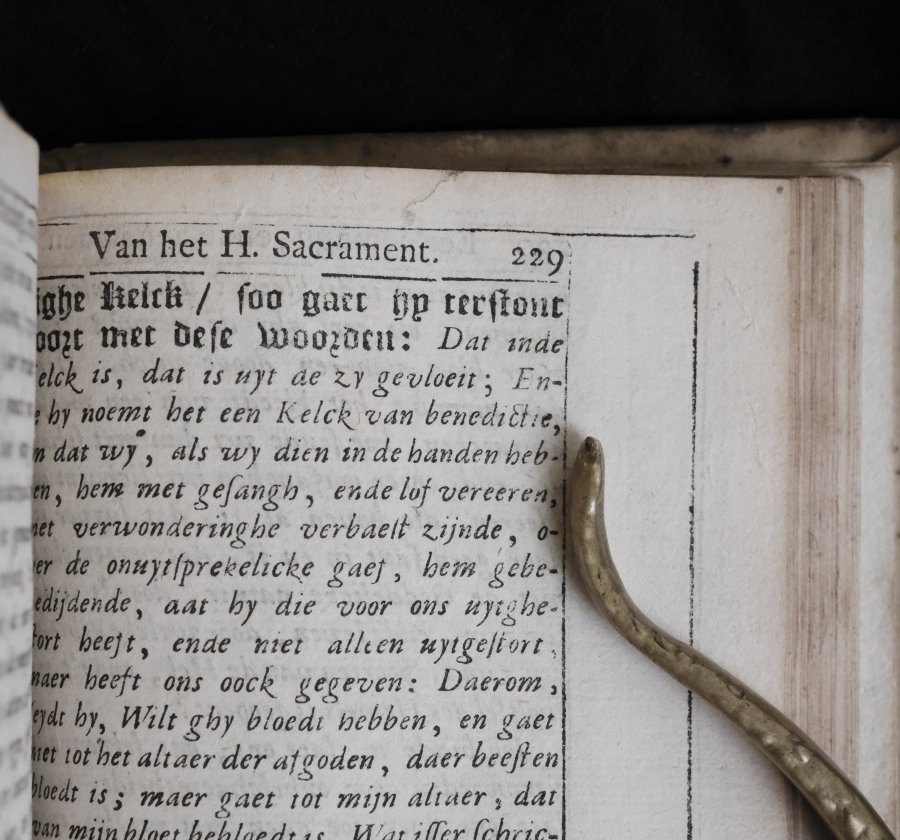 Van het H. Sacrament. 229
ighe Kelck / soo gaet hy terstont
oort met dese woorden: Dat inde
elck is, dat is uyt de zy gevloeit; En-
e hy noemt het een Kelck van benedictie,
n dat wy, als wy dien in de handen heb-
en, hem met gesangh, ende lof vereeren,
met verwonderinghe verbaest zijnde, o-
er de onuytsprekelicke gaef, hem gebe-
edijdende, dat hy die voor ons uytghe-
tort heeft, ende niet alleen uytgestort,
maer heeft ons oock gegeven: Daerom,
seydt hy, Wilt ghy bloedt hebben, en gaet
niet tot het altaer der afgoden, daer beesten
bloedt is; maer gaet tot mijn altaer, dat
van mijn bloet bebloedt is. Wat isser schric-